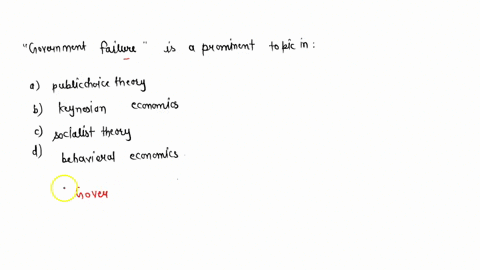 "Government failure" is a prominent topic in:
a) public choice theory
b) keynesian economics
c) socialist theory
d) behavieral economics.
Gover